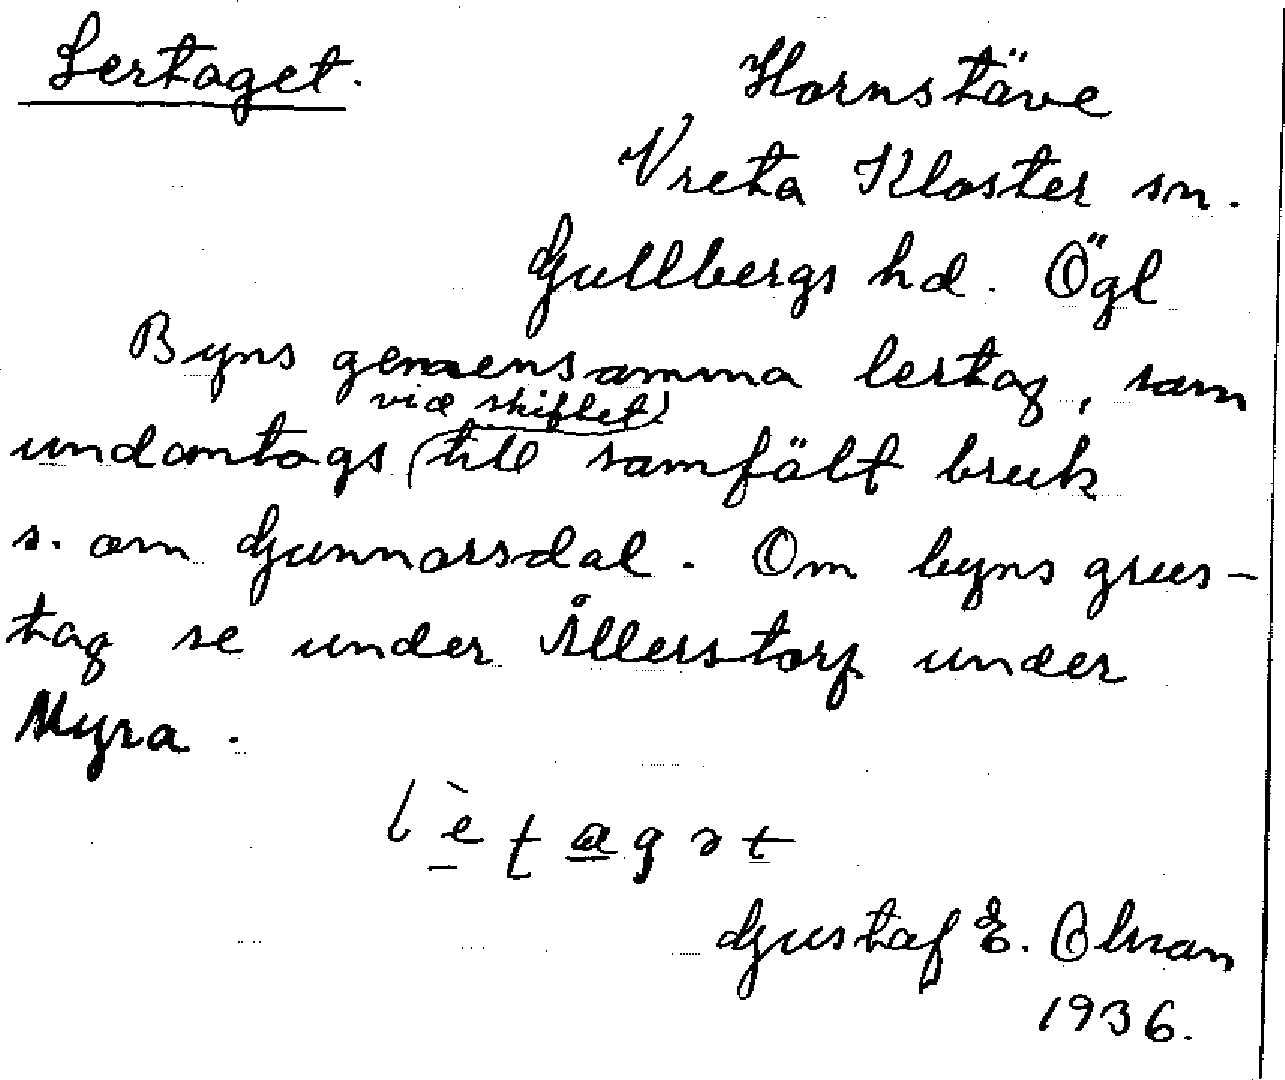 Lertaget.
Hornstäve
Vreta Kloster sn.
Gullbergs hd. Ögl
Byns gemensamma lertag, som
vid skiftet
undantogs till samfält bruk
s. om Gunnarsdal. Om byns grus-
tag se under Ållerstorp under
Myra.
Gustaf E. Olsson
1936.